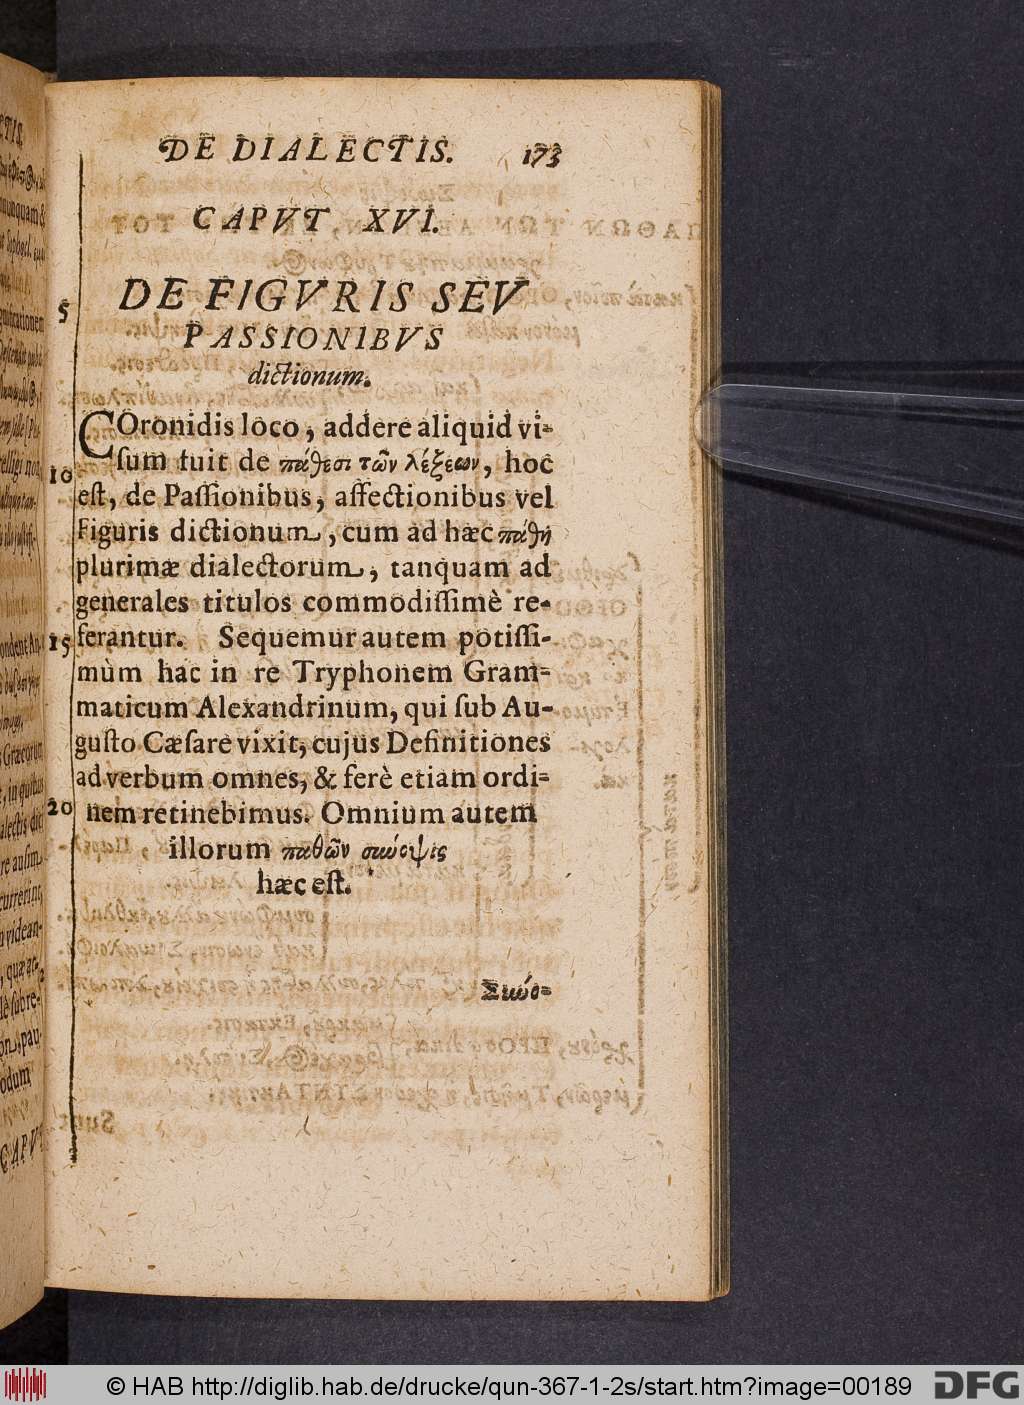 DE DIALECTIS. 173
CAPVT XVI.
DE FIGVRIS SEV
PASSIONIBVS
dictionum.
COronidis loco, addere aliquid vi-
sum fuit de πάθεσι τῶν λέξεων, hoc
est, de Passionibus, affectionibus vel
Figuris dictionum, cum ad hæc πάθη
plurimæ dialectorum, tanquam ad
generales titulos commodissimè re-
ferantur. Sequemur autem potissi-
mùm hac in re Tryphonem Gram-
maticum Alexandrinum, qui sub Au-
gusto Cæsare vixit, cujus Definitiones
ad verbum omnes, & ferè etiam ordi-
nem retinebimus. Omnium autem
illorum παθῶν σύνοψις
hæc est.
Σύνο-
5
10
15
20
© HAB http://diglib.hab.de/drucke/qun-367-1-2s/start.htm?image=00189
DFG